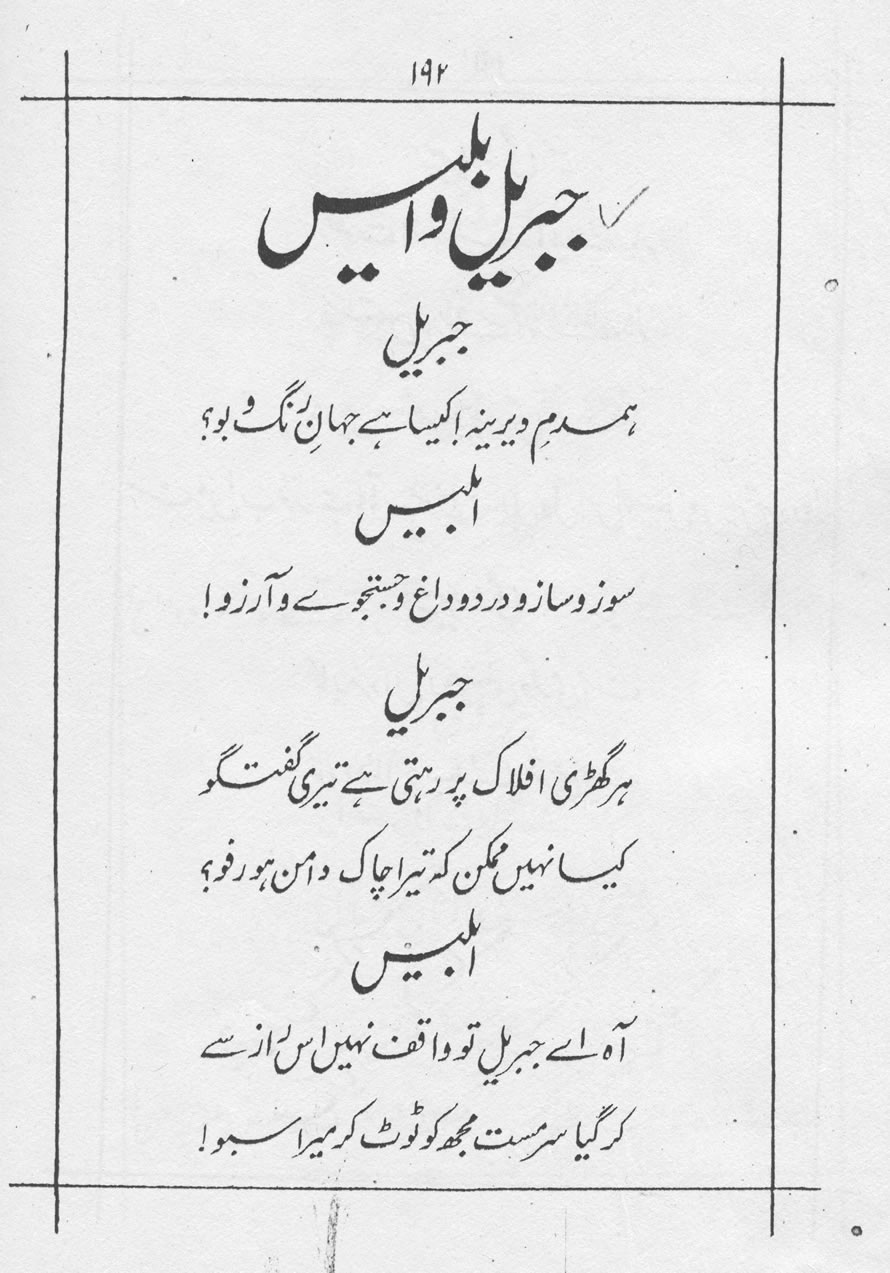 ۱۹۲
جبریل و ابلیس
جبریل
ہمدمِ دیرینہ! کیسا ہے جہانِ رنگ و بو؟
ابلیس
سوز و ساز و درد و داغ و جستجوے و آرزو!
جبریل
ہر گھڑی افلاک پر رہتی ہے تیری گفتگو
کیا نہیں ممکن کہ تیرا چاک دامن ہو رفو؟
ابلیس
آہ اے جبریل تو واقف نہیں اس راز سے
کر گیا سرمست مجھ کو ٹوٹ کر میرا سبو!